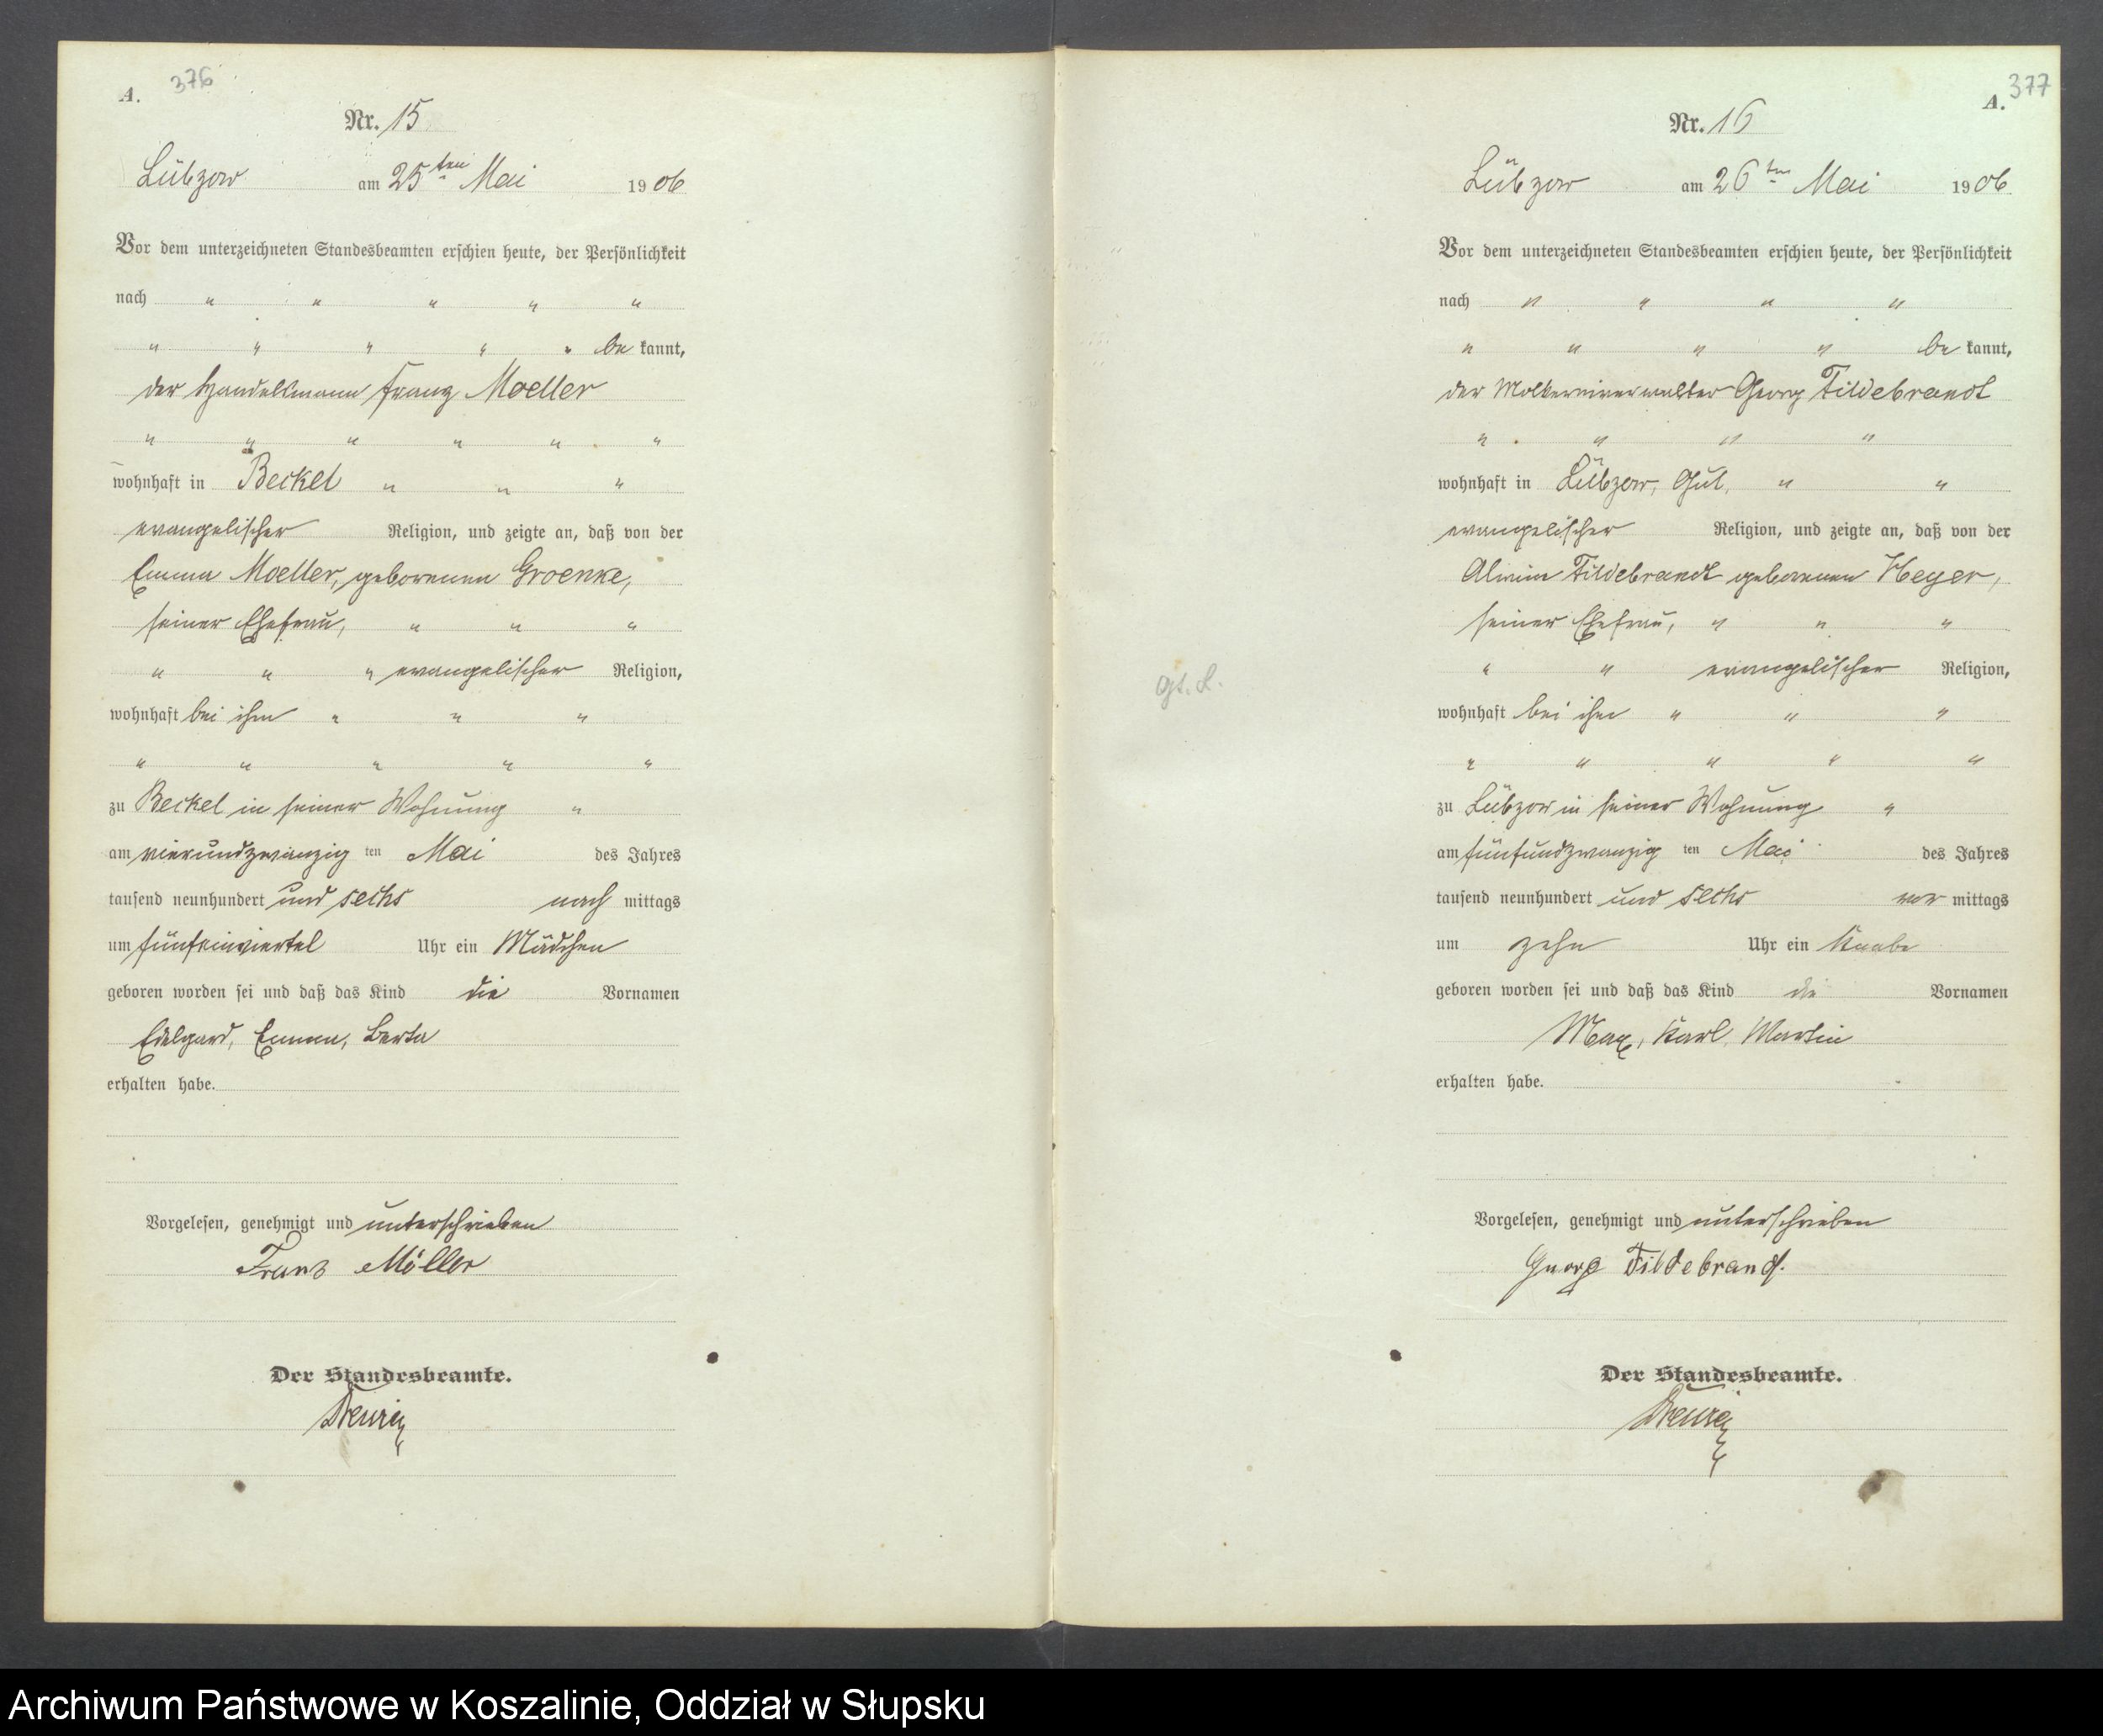 A. 376
Nr. 15
Lübzow am 25ten Mai 1906
Vor dem unterzeichneten Standesbeamten erschien heute, der Persönlichkeit
nach " " " " "
" " " " " be kannt,
der Handelsmann Franz Moeller
" " " " " "
wohnhaft in Beckel " " "
evangelischer Religion, und zeigte an, daß von der
Emma Moeller, geborenen Groenke,
seiner Ehefrau, " " "
" " " evangelischer Religion,
wohnhaft bei ihm " " "
" " " " "
zu Beckel in seiner Wohnung "
am vierundzwanzig ten Mai des Jahres
tausend neunhundert und sechs nach mittags
um fünfeinviertel Uhr ein Mädchen
geboren worden sei und daß das Kind die Vornamen
Edelgard, Emma, Berta
erhalten habe.
Vorgelesen, genehmigt und unterschrieben
Franz Möller
Der Standesbeamte.
377
A.
Nr. 16
Lübzow am 26ten Mai 1906
Vor dem unterzeichneten Standesbeamten erschien heute, der Persönlichkeit
nach " " " "
" " " " be kannt,
der Molkereiverwalter Georg Fildebrandt
" " " "
wohnhaft in Lübzow, Gut, " "
evangelischer Religion, und zeigte an, daß von der
Fildebrandt geborenen Heyer,
seiner Ehefrau, " " "
" " evangelischer Religion,
wohnhaft bei ihm " " "
" " " " "
zu Lübzow in seiner Wohnung "
am fünfundzwanzig ten Mai des Jahres
tausend neunhundert und sechs vor mittags
um zehn Uhr ein Knabe
geboren worden sei und daß das Kind die Vornamen
Max, Karl, Martin
erhalten habe.
Vorgelesen, genehmigt und unterschrieben
Georg Fildebrandt.
Der Standesbeamte.
Archiwum Państwowe w Koszalinie, Oddział w Słupsku